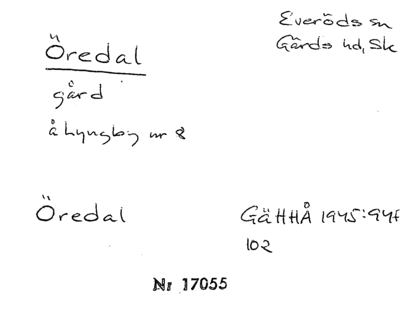 Öredal
Everöds sn
Gärds hd, Sk
gård
å Lyngby nr 8
Öredal
GäHHÅ 1945:94f
102
Nr 17055